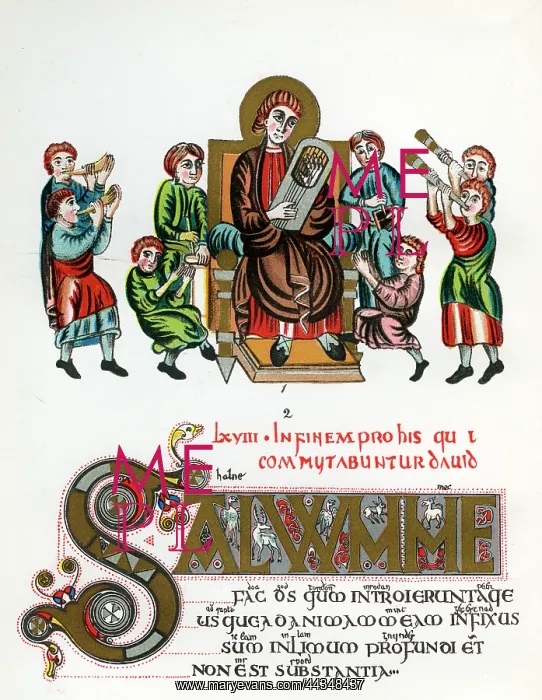 ME
PL
1
2
lxviii · IN FINEM PRO his qui
COMMUTABUNTUR DAUID
ME
PL
SALUUM ME
FAC DS QUM INTROIERUNT AQE
US QUE AD ANIMAM MEAM INFIXUS
SUM IN LIMUM PROFUNDI ET
NON EST SUBSTANTIA...
www.maryevans.com/44348437